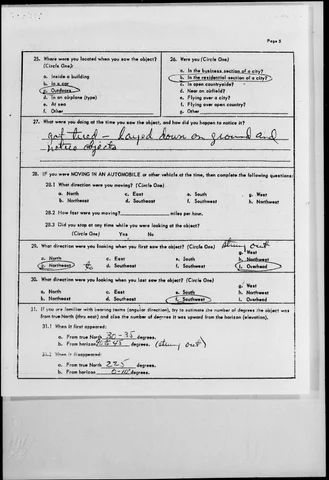 Page 5
25. Where were you located when you saw the object? (Circle One):
a. Inside a building
b. In a car
c. Outdoors
d. In an airplane (type)
e. At sea
f. Other
26. Were you (Circle One)
a. In the business section of a city?
b. In the residential section of a city?
c. In open countryside?
d. Near an airfield?
e. Flying over a city?
f. Flying over open country?
g. Other
27. What were you doing at the time you saw the object, and how did you happen to notice it?
got tired – layed down on ground and
notice objects
28. IF you were MOVING IN AN AUTOMOBILE or other vehicle at the time, then complete the following questions:
28.1 What direction were you moving? (Circle One)
a. North c. East e. South g. West
b. Northeast d. Southeast f. Southwest h. Northwest
28.2 How fast were you moving? miles per hour.
28.3 Did you stop at any time while you were looking at the object?
(Circle One) Yes No
29. What direction were you looking when you first saw the object? (Circle One) strung out
a. North c. East e. South g. West
b. Northeast to d. Southeast f. Southwest h. Northwest
i. Overhead
30. What direction were you looking when you last saw the object? (Circle One)
a. North c. East e. South g. West
b. Northeast d. Southeast f. Southwest h. Northwest
i. Overhead
31. If you are familiar with bearing terms (angular direction), try to estimate the number of degrees the object was
from true North (thru east) and also the number of degrees it was upward from the horizon (elevation).
31.1 When it first appeared:
a. From true North 30-35 degrees.
b. From horizon to 45 degrees. (strung out)
31.2 When it disappeared:
a. From true North 225 degrees.
b. From horizon 0-10 degrees.